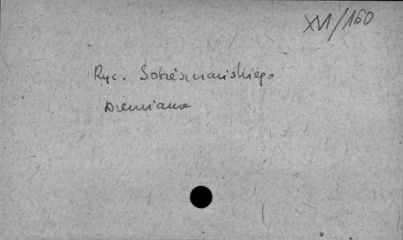 XVI/160
Ryc. Sobieszczańskiego
Drewniana